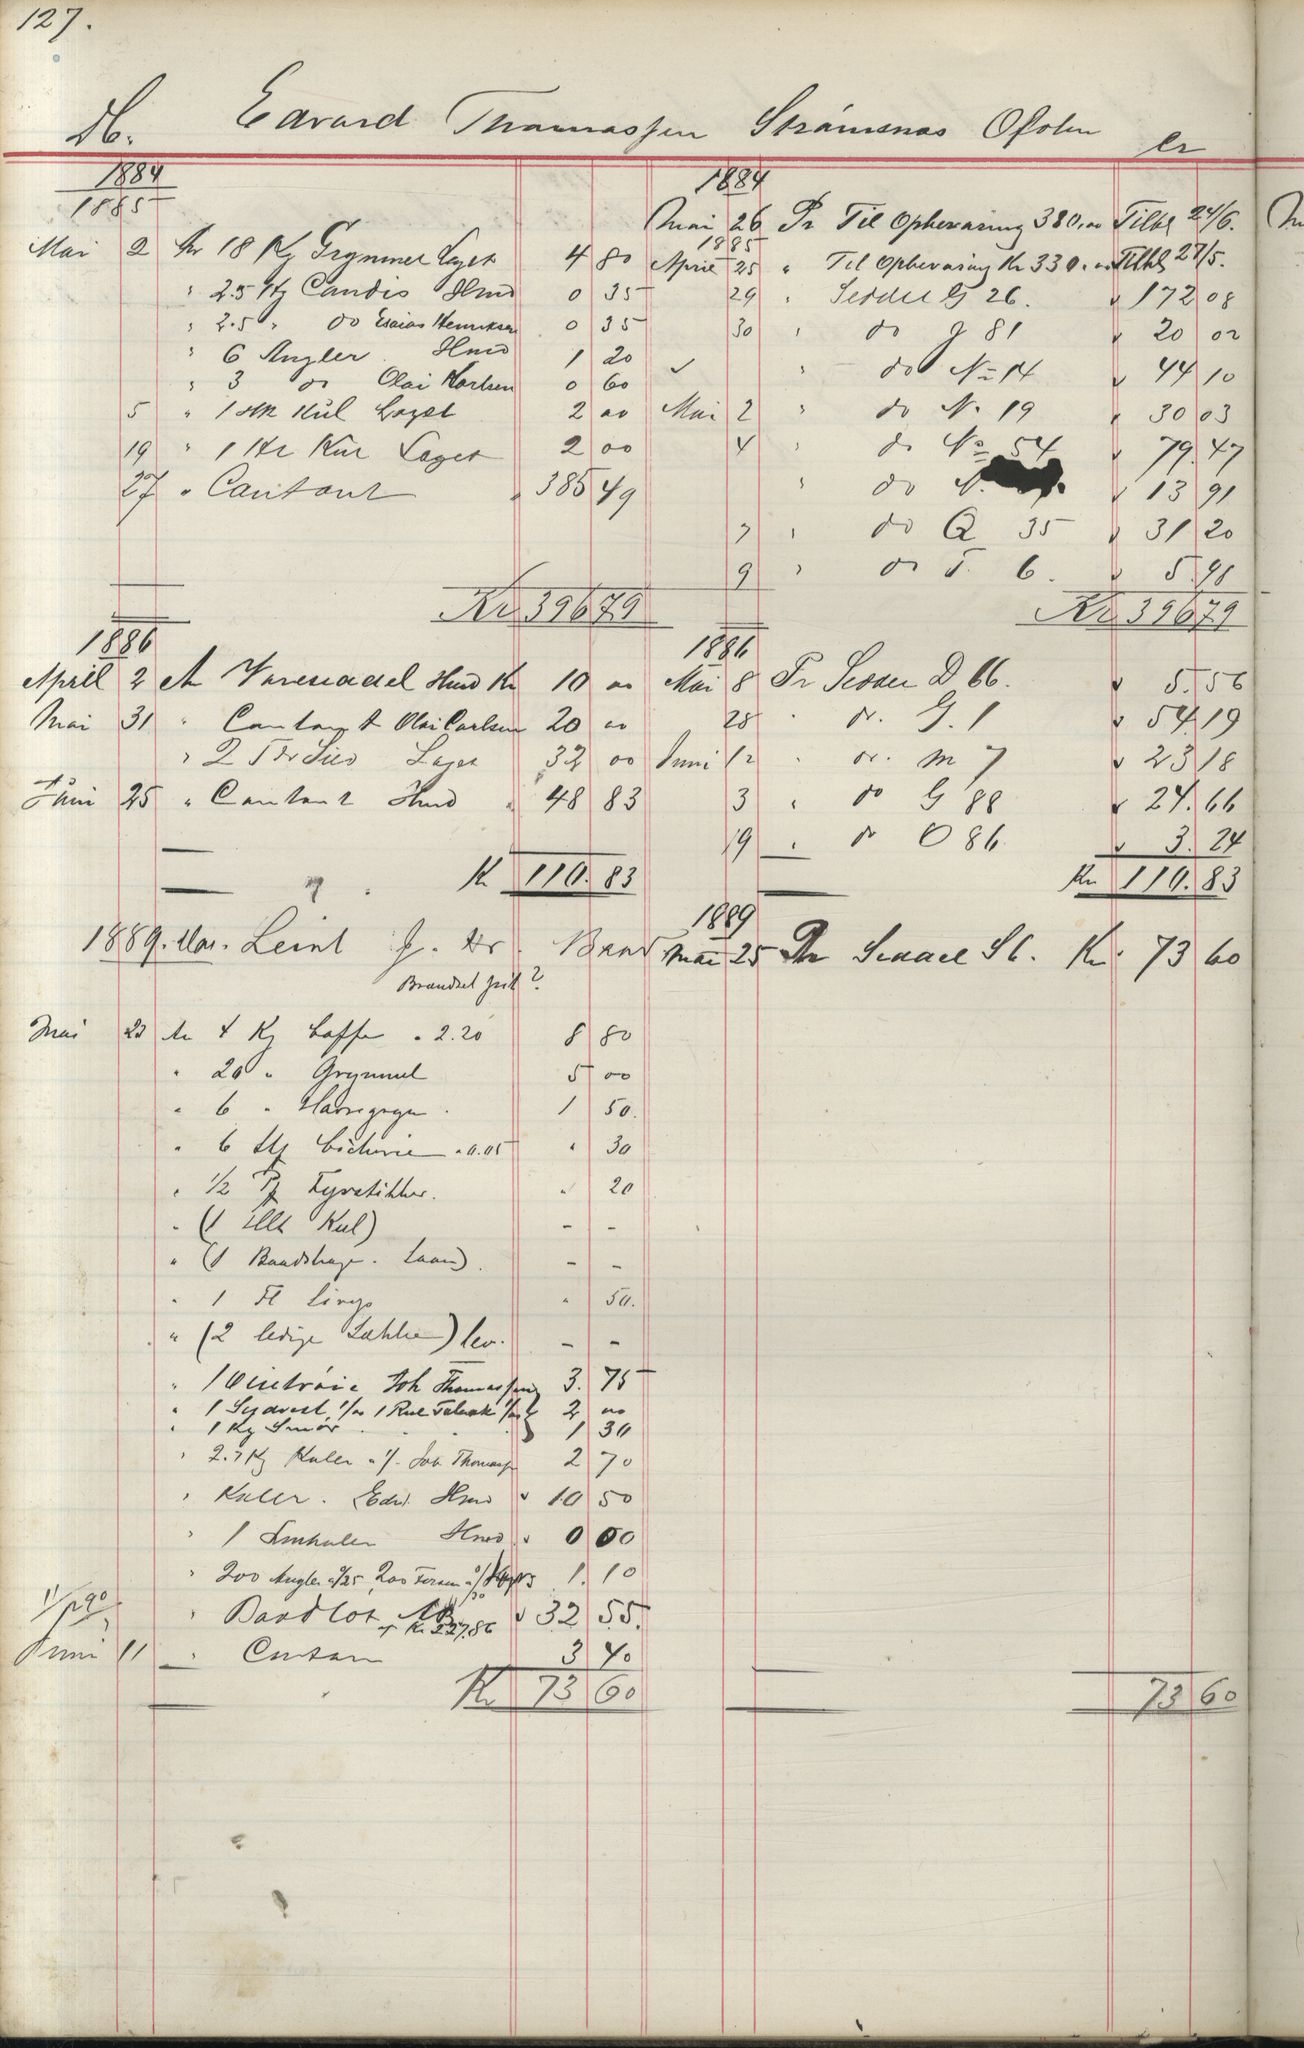 127.
Db. Edvard Thomassen Strömsnæs Ofoten Cr
1884
1885
Mai 2 An 18 Kg Grynmel Laget 4 80
" 2.5 Kg Candis Hmd 0 35
" 2.5 " do Esaias Henriksen 0 35
" 6 Angler Hmd 1 20
" 3 do Olai Karlsen 0 60
5 " 1 Kul Laget 2 00
19 " 1 Kul Laget 2 00
27 " Contant " 385 49
Kr 396 79
1884
Mai 26 Pr Til Opbevaring 380,00 Tilb 24/6.
1885
April 25 " Til Opbevaring Kr 330,00 Tilb 27/5.
29 " Seddel G 26. " 172 08
30 " do J 81 " 20 02
" do No 14 " 44 10
Mai 2 " do No 19 " 30 03
4 " do No 54 " 79.47
" do N. " 13 91
7 " do Q 35 " 31 20
9 " do T. 6. " 5.98
Kr 396 79
1886
April 2 An Vareseddel Hmd Kr 10 00
Mai 31 " Contant Olai Carlsen 20 00
" 2 Laget 32 00
Juni 25 " Contant Hmd " 48 83
Kr 110.83
1886
Mai 8 Pr Seddel D 66. " 5.56
28 " do. G. 1 " 54.19
Juni 12 " do. M 7 " 23 18
3 " do G 88 " 24.66
19 " do O 86 " 3.24
Kr 110.83
1889. Mar. Leint
Brændsel
Mai 23 An 4 Kg Caffe " 2.20 8 80
" 20 " Grynmel 5 00
" 6 " Havregryn 1 50.
" 6 Cichorie " 0.05 " 30
" 1/2 Fyrstikker. " 20
" (1 Kul) - -
" (1 Baadshage. Laan). - -
" 1 Fl " 50.
" (2 ledige Sække) lev. - -
" 1 Joh Thomassen 3. 75
" 1 Sydvest 1 Rul Tobak 2 00
" 1 Kg Smör 1 30
" 2.7 Kg Kuler Joh Thomassen 2 70
" Kuler. Edv. Hmd " 10 50
" 1 Hmd " 0 00
" 200 Angler 200 1.10
" Baadlot af Kr 227.86 " 32 55.
Juni 11 " Contant 3 40
Kr 73 60
1889
Mai 25 Pr Seddel S 6. Kr. 73 60
73 60